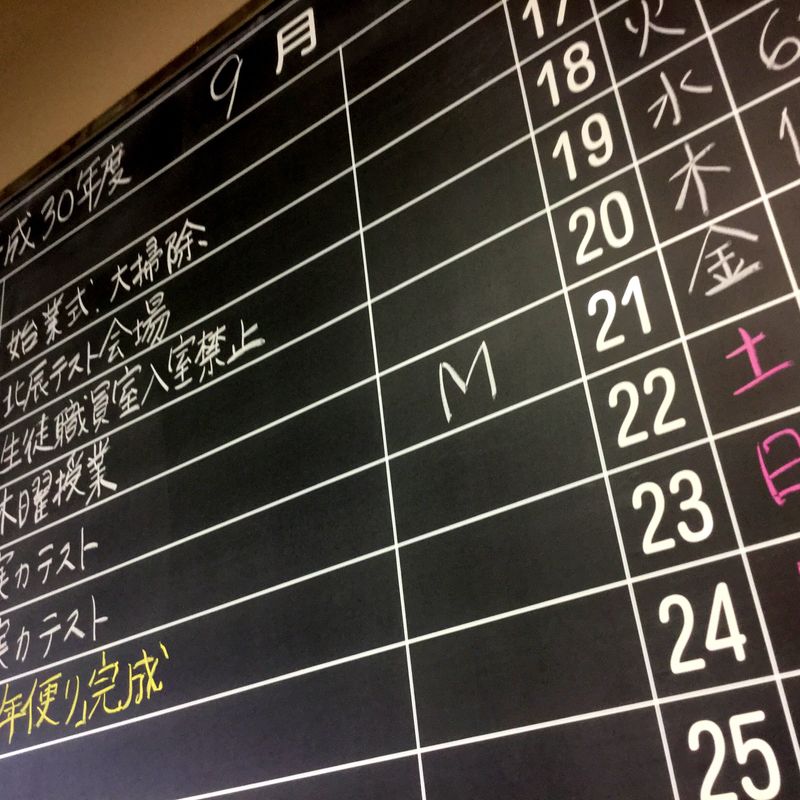 9月
成30年度
始業式.大掃除
北辰テスト会場
生徒職員室入室禁止
木曜授業 M
実力テスト
実力テスト
年便り」完成
17
18 火
19 水 6
20 木
21 金
22 土
23 日
24
25